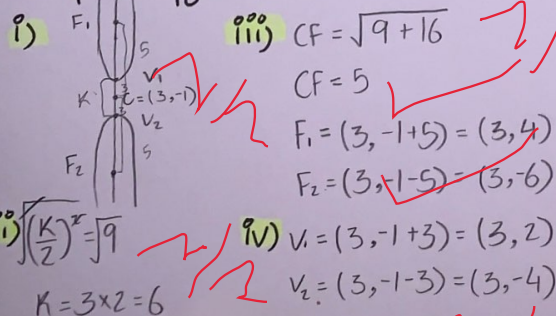 i)
F₁
5
V₁
K
C=(3,-1)
V₂
F₂
5
i) √(K/2)² = √9
K = 3×2 = 6
iii) CF = √9 + 16
CF = 5
F₁ = (3, -1+5) = (3, 4)
F₂ = (3, -1-5) = (3, -6)
iv) V₁ = (3, -1+3) = (3, 2)
V₂ = (3, -1-3) = (3, -4)